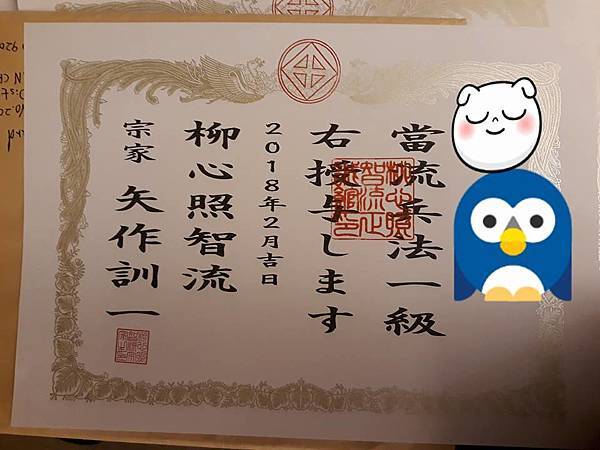 當流兵法一級
右授与します
2018年2月吉日
柳心照智流
宗家 矢作訓一